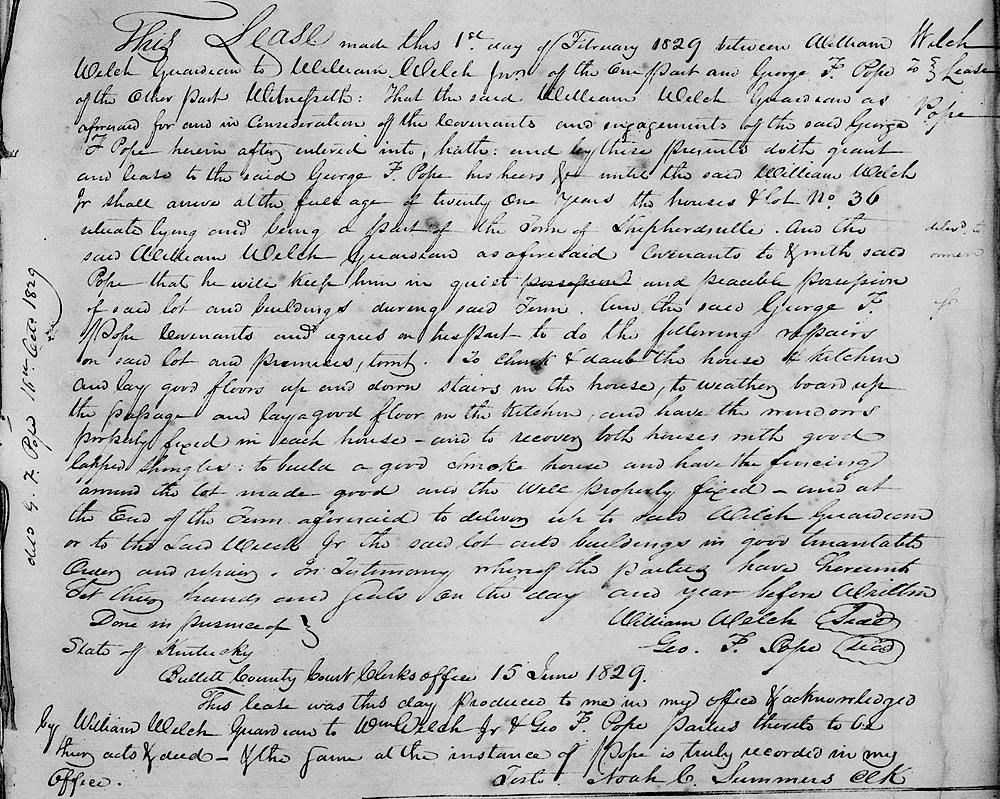 This Lease made this 1st day of February 1829 between William
Welch Guardian to William Welch Junr of the One part and George F. Pope
of the Other part Witnesseth: That the said William Welch Guardian as
aforesaid for and in Consideration of the Covenants and engagements of the said George
F Pope herein after entered into, hath: and by these presents doth grant
and lease to the said George F. Pope his heers &c untill the said William Welch
Jr shall arrive at the full age of twenty One Years the houses & lot No. 36
situate lying and being a part of the Town of Shepherdsville. And the
said William Welch Guardian as aforesaid Covenants to & with said
Pope that he will keep him in quiet possession and peacible possession
of said lot and buildings during said Term. And the said George F.
Pope Covenants and agrees on his part to do the following repairs
on said lot and premises, towit. To chink & daub the house & kitchen
and lay good floors up and down stairs in the house, to weather board up
the passage and lay a good floor in the kitchen, and have the windows
properly fixed in each house - and to recover both houses with good
lapped shingles: to build a good smoke house and have the fencing
around the lot made good and the Well properly fixed - and at
the End of the Term aforesaid to deliver up to said Welch Guardian
or to the said Welch Jr the said lot and buildings in good tenantable
Order and repair. In Testimony whereof the parties have hereunto
Set their hands and seals On the day and year before Written
Done in presence of } William Welch (Seal)
Geo. F. Pope (Seal)
State of Kentucky
Bullitt County Court Clerks office 15 June 1829.
This lease was this day produced to me in my office & acknowledged
by William Welch Guardian to Wm Welch Jr & Geo F. Pope parties thereto to be
their acts & deed - & the same at the instance of Pope is truly recorded in my
Office. Test. Noah C. Summers Clk
Welch
To } Lease
Pope
deld to
G. F. Pope 16th Octr 1829